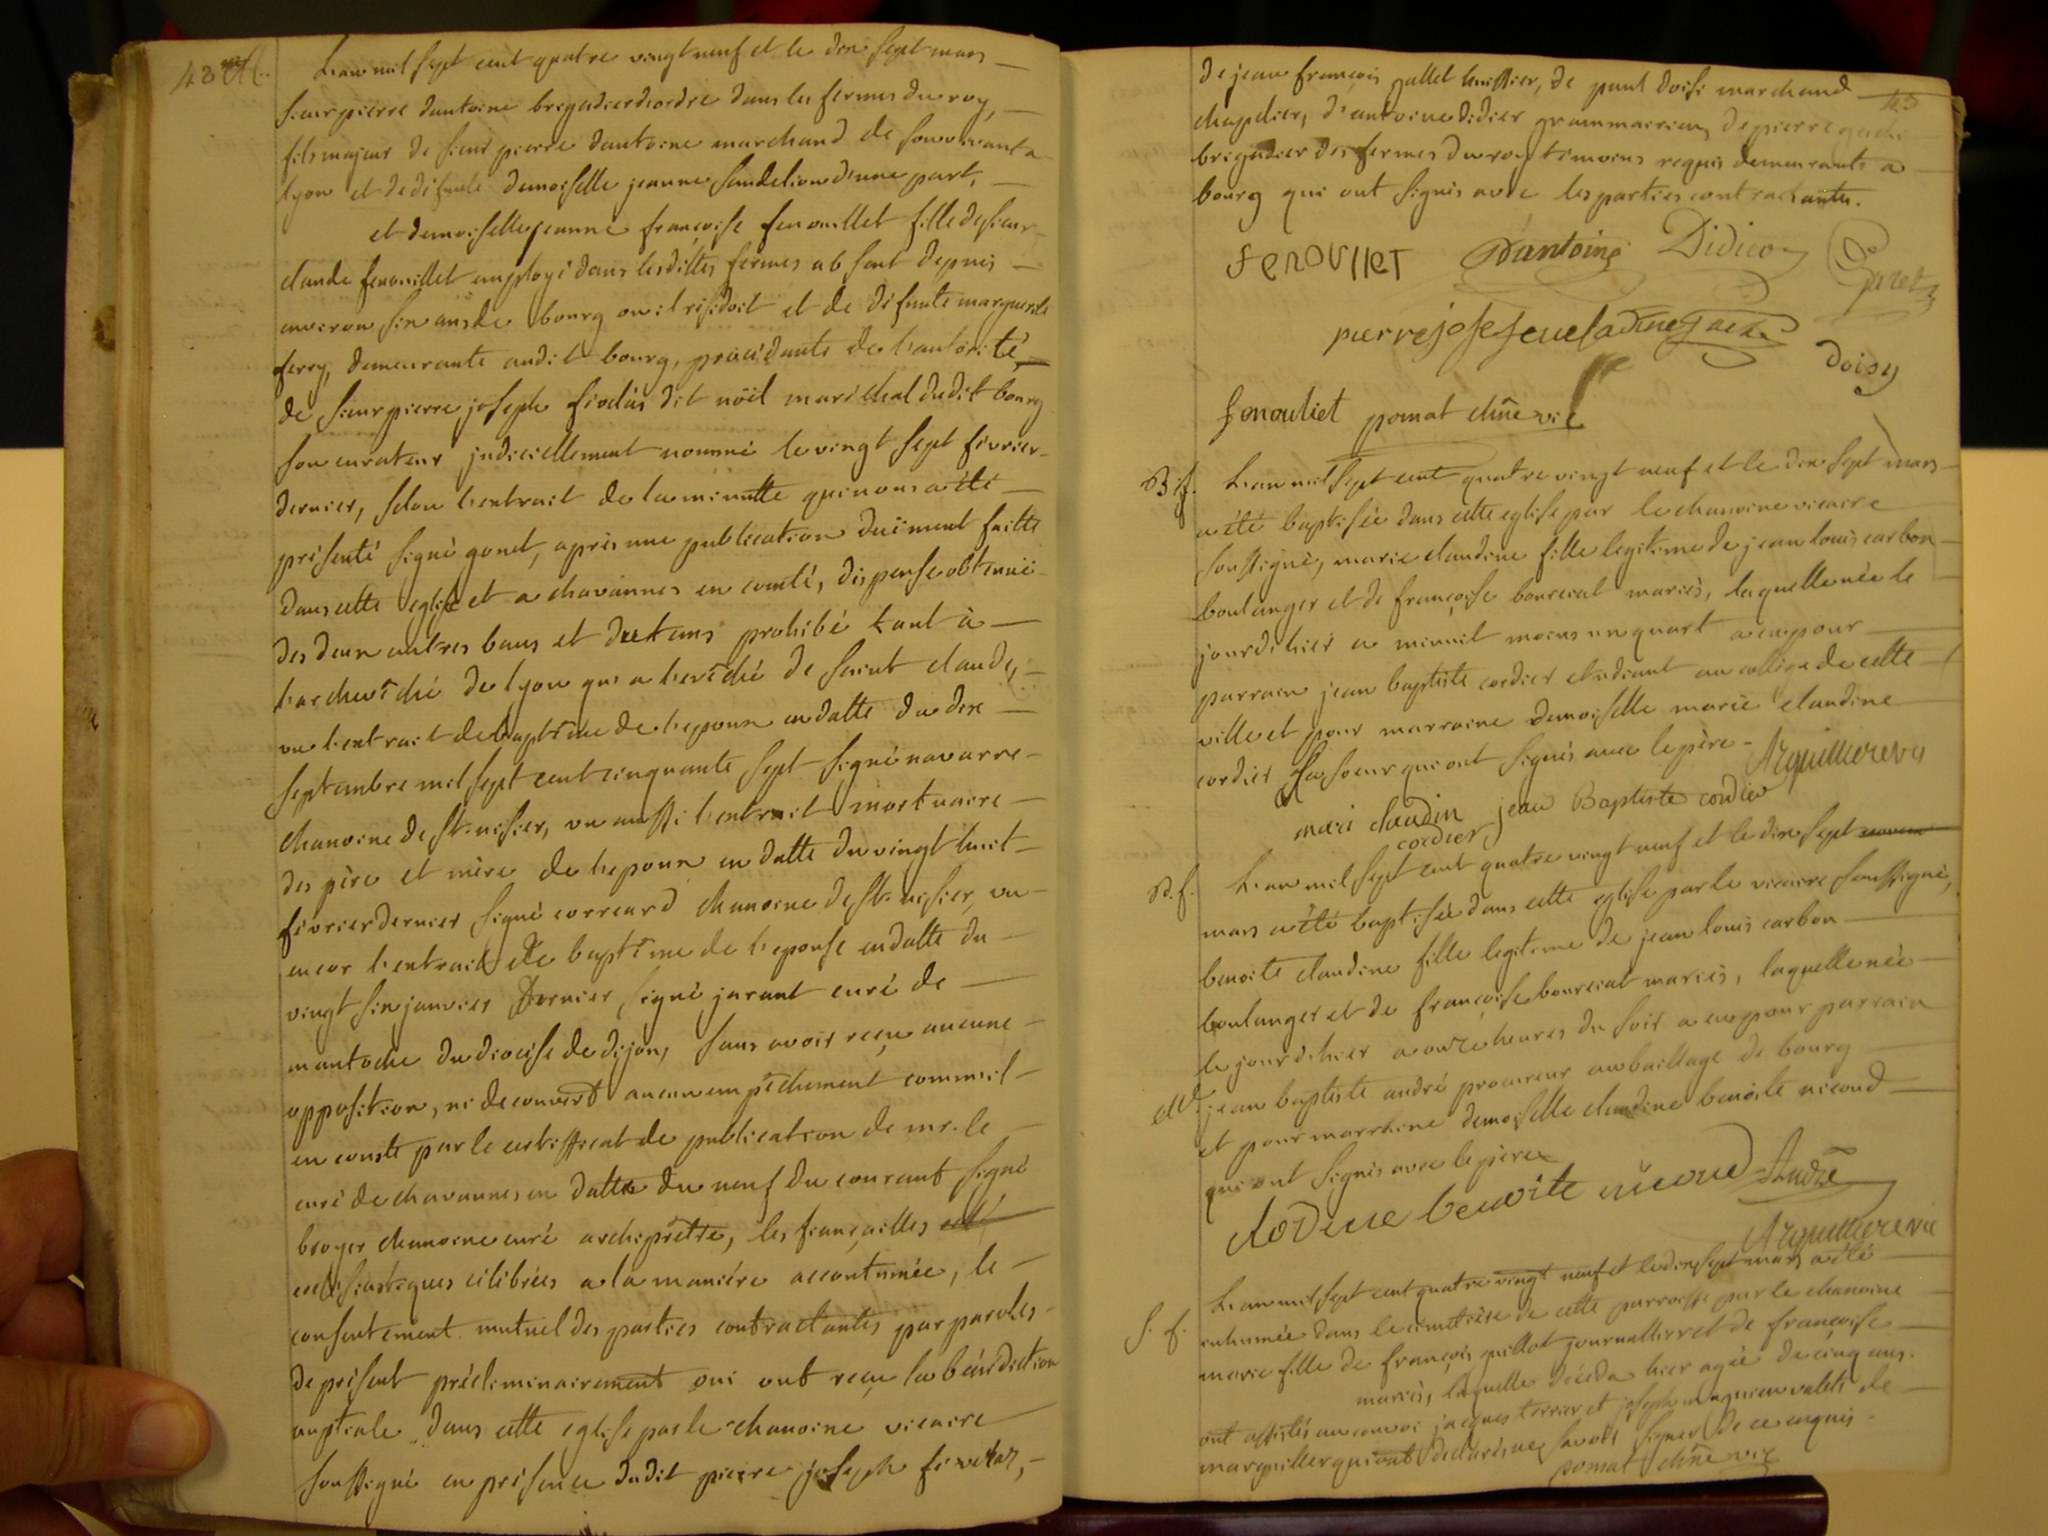 L'an mil sept cent quatre vingt neuf et le dix sept mars
sieur pierre dantoine brigadier d'ordre dans les fermes du roy,
fils majeur de sieur pierre dantoine marchand de son vivant a
lyon et de défunte demoiselle jeanne d'une part,
et demoiselle jeanne françoise fenouillet fille de sieur
claude fenouillet employé dans lesdittes fermes absent depuis
environ six ans de bourg ou il residoit et de défunte marguerite
ferry, demeurante audit bourg, procédante de l'autorité
de sieur pierre joseph dit nöel maréchal dudit bourg
son curateur judiciellement nommé le vingt sept février
dernier, selon l'extrait de la minutte qui nous a été
présenté signé gonet, après une publication duëment faitte
dans cette eglise et a chavannes en comté, dispense obtenüe
des deux autres bans et du tems prohibé tant à
l'archevêché de lyon qu'a l'evêché de saint claude,
vu l'extrait de baptême de l'epoux en datte du dix
septembre mil sept cent cinquante sept signé navarre
chanoine de st. nisier, vu aussi l'extrait mortuaire
des père et mère de l'epoux en datte du vingt huit
février dernier signé correard chanoine de st. nisier, vu
encor l'extrait de baptême de l'epouse en datte du
vingt six janvier dernier signé jurant curé de
mantoche du diocèse de dijon, sans avoir reçu aucune
opposition, ni decouvert aucun empêchement comme il
en conste par le certifficat de publication de mr. le
curé de chavannes en datte du neuf du courant signé
broyer chanoine curé archiprêtre, les fiançailles
ecclésiastiques célébrées a la manière accoutumée, le
consentement mutuel des parties contractantes par paroles
de présent préeliminairement oui ont reçu la bénédiction
nuptiale dans cette eglise par le chanoine vicaire
soussigné en présence dudit pierre joseph
de jean françois gallet huissier, de paul doisi marchand
chapelier, d'antoine didier grammairien, de pierre
brigadier des fermes du roy témoins requis demeurants a
bourg qui ont signés avec les parties contractantes.
fenoullet Dantoine Didier
pierre josef
doisy
fenouliet pomat chne vic
B. f. L'an mil sept cent quatre vingt neuf et le dix sept mars
a été baptisée dans cette eglise par le chanoine vicaire
soussigné, marie claudine fille legitime de jean louis carbon
boulanger et de françoise bourcial mariés, laquelle née le
jour d'hier a minuit moins un quart a eu pour
parrain jean baptiste cordier etudiant au collège de cette
ville et pour marraine demoiselle marie claudine
cordier sa soeur qui ont signés avec le père.
marie claudin cordier jean Baptiste cordier
B. f. L'an mil sept cent quatre vingt neuf et le dix sept
mars a été baptisée dans cette eglise par le vicaire soussigné,
benoite claudine fille legitime de jean louis carbon
boulanger et de françoise bourcial mariés, laquelle née
le jour d'hier a onze heures du soir a eu pour parrain
jean baptiste andré procureur au baillage de bourg
et pour marraine demoiselle claudine benoite nicoud
qui ont signés avec le père
clodine benoite nicoud André
S. f. L'an mil sept cent quatre vingt neuf et le dix sept mars a été
inhumée dans le cimetière de cette parroisse par le chanoine
marie fille de françois guillot journallier et de françoise
mariés, laquelle décéda hier agée de cinq ans.
ont assistés au convoi jacques terrier et joseph valets de
marguiller qui ont déclarés ne savoir signer de ce enquis.
pomat chne vic